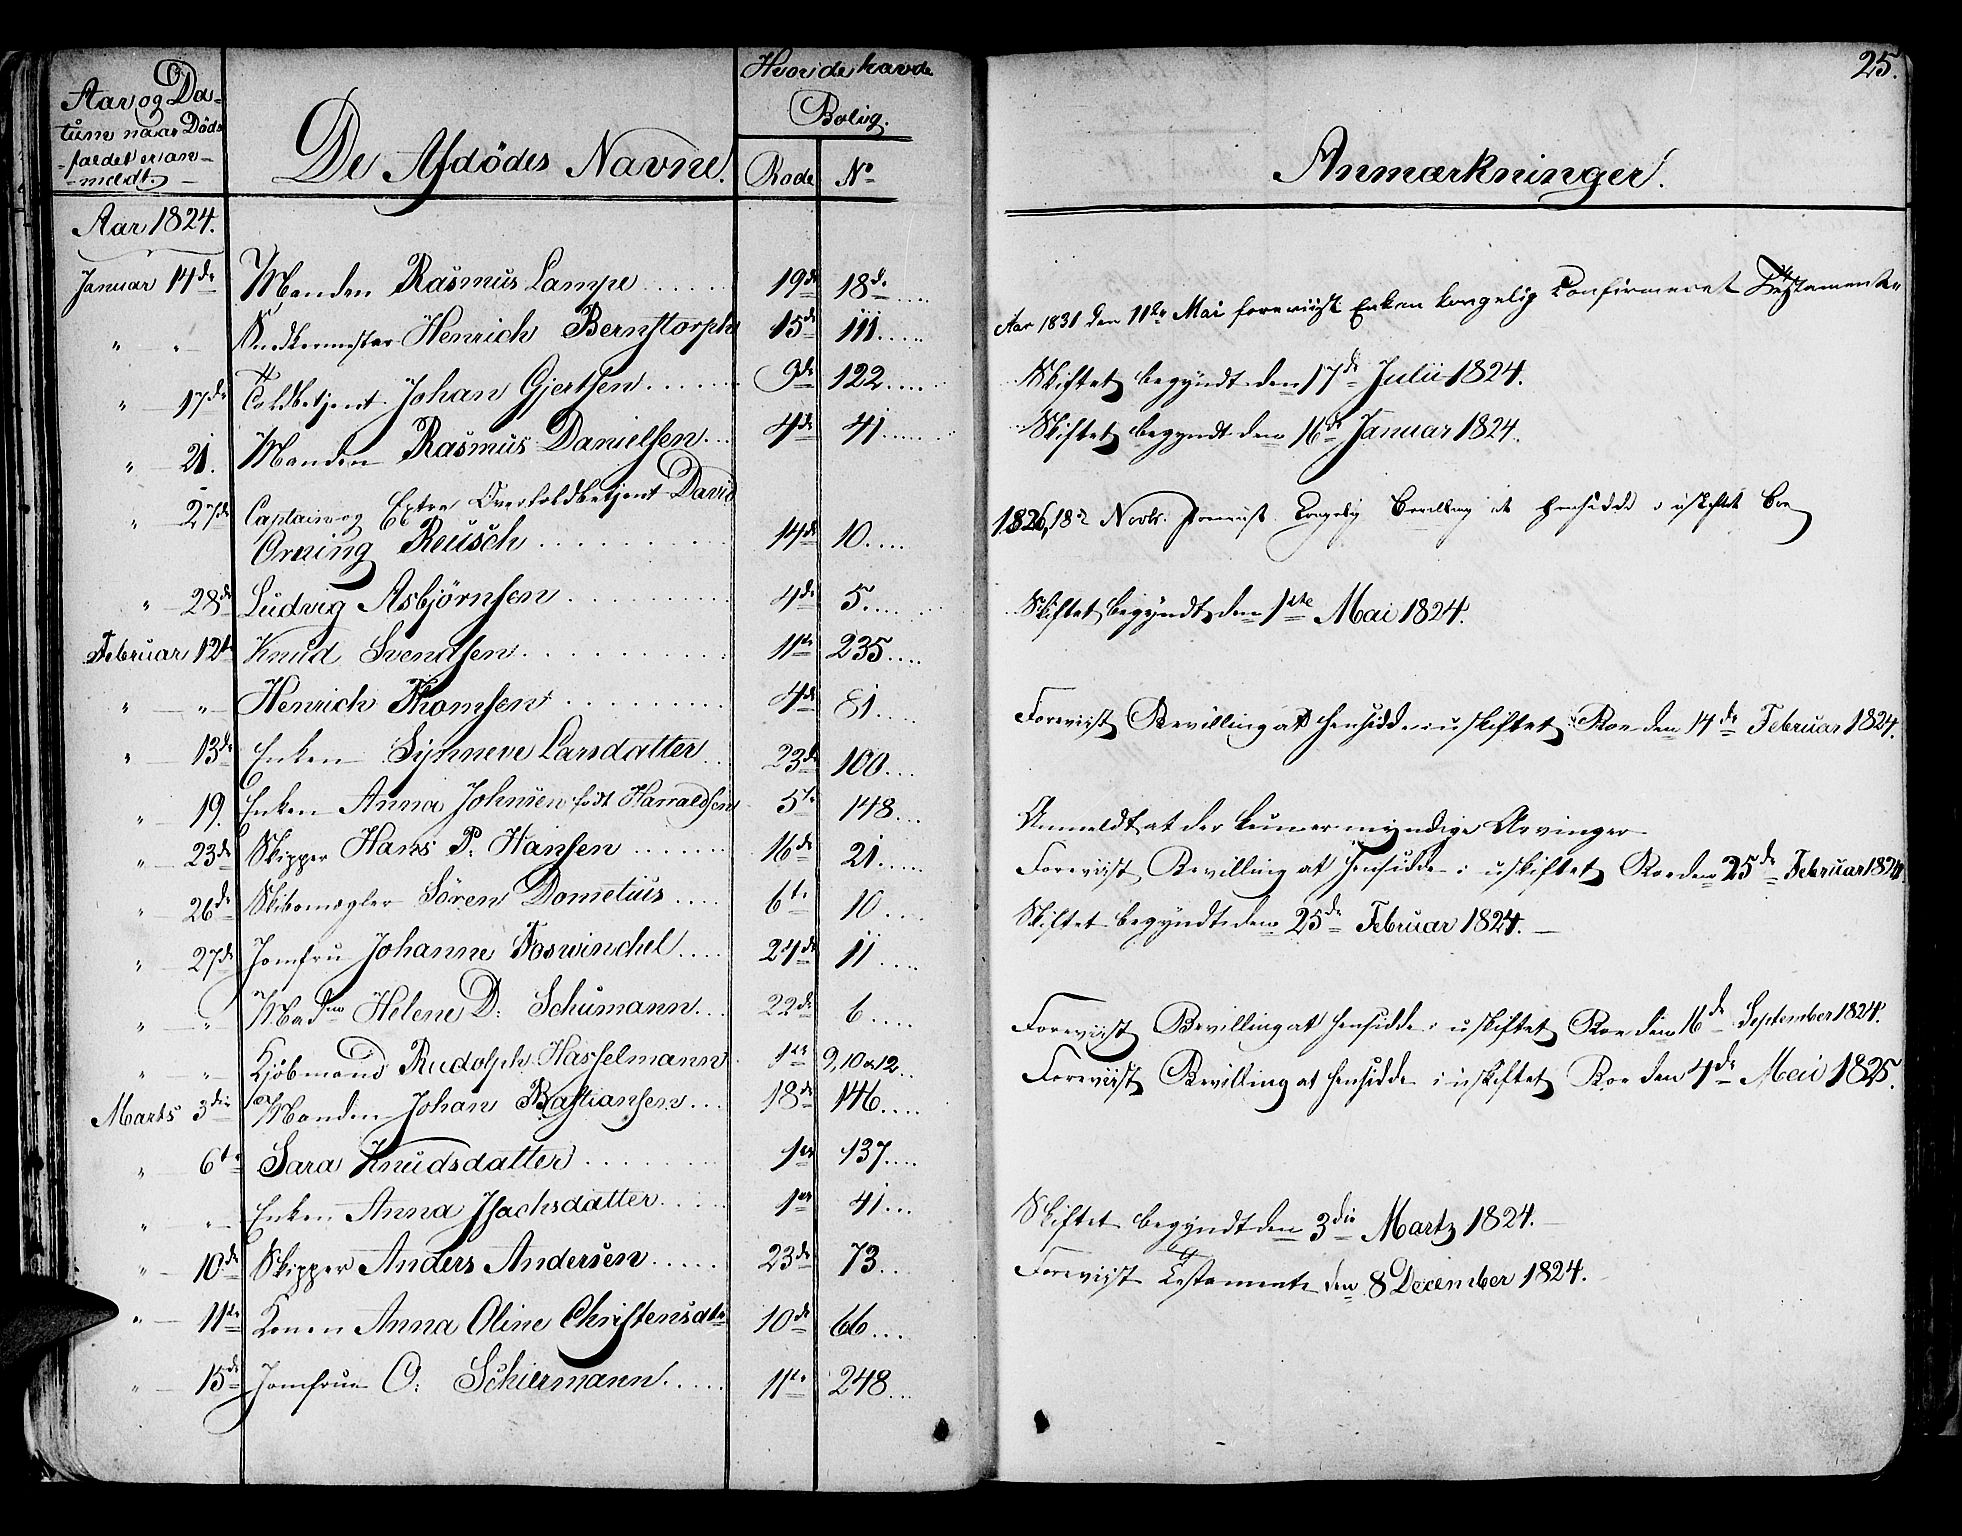 Aar og Da-
tum naar Döds
-faldet er an-
-meldt.
De Afdödes Navne.
Hvor de havde
Bolig.
Rode No
Aar 1824.
Januar 14de Manden Rasmus Lampe ...... 19de 18de.....
" " Snedkermester Henrich Bernstorph 15de 111.....
" 17de Toldbetjent Johan Gjertsen ...... 3de 122.....
" 21. Manden Rasmus Danielsen... 4de 41......
" 27de Captain og Extra Overtoldbetjent David
Orning Reüsch ......... 14de 10.....
" 28de Ludvig Asbjörnsen ........ 4de 5.....
Februar 12te Knud Svendsen .......... 11te 235....
" " Henrich Thomsen ........ 4de 81....
" 13de Enken Synneve Larsdatter .. 23de 100...
" 19. Enken Anna Johnsen födt Harraldsen 5te 148...
" 23de Skipper Hans P: Hansen ...... 16de 21.....
" 26de Skibsmægler Sören Dometius .... 6te 10....
" 27de Jomfru Johanne Foswinckel .... 24de 11.....
" " Madme Helene D: Schumann... 22de 6.....
" " Kjöbmand Rudolph Hasselmann 1ste 9, 10 & 12..
Marts 3die Manden Johan Bastiansen... 18de 146....
" 6te Sara Knudsdatter ....... 1ste 137....
" " Enken Anna Isachsdatter..... 1ste 41...
" 10de Skipper Anders Andersen..... 23de 73...
" 11te Konen Anna Oline Christensdtr 10de 66...
" 15de Jomfrue C: Schiermann..... 11te 248...
25.
Anmærkninger.
Aar 1831 den 11te Mai foreviist Enken kongelig Confirmeret Testamente
Skiftet begyndt den 17de Julii 1824.
Skiftet begyndt den 16de Januar 1824.
1826, 18de Novbr. foreviist Kongelig Bevilling at hensidde i uskiftet Boe
Skiftet begyndt den 1ste Mai 1824.
Foreviist Bevilling at hensidde i uskiftet Boe den 14de Februar 1824.
Anmeldt at der kun er myndige Arvinger
Foreviist Bevilling at hensidde i uskiftet Boe den 25de Februar 1824.
Skiftet begyndt den 25de Februar 1824.
Foreviist Bevilling at hensidde i uskiftet Boe den 16de September 1824.
Foreviist Bevilling at hensidde i uskiftet Boe den 4de Mai 1825.
Skiftet begyndt den 3die Martz 1824.
Foreviist Testamente den 8 December 1824.